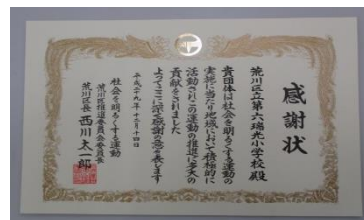 感謝状
荒川区立第六瑞光小学校殿
貴団体は社会を明るくする運動の
実施に当たり地域において積極的に
活動されこの運動の推進に多大の
貢献をされました
よってここに深く感謝の意を表します
平成二十九年十二月十四日
社会を明るくする運動
荒川区推進委員会委員長
荒川区長 西川太一郎